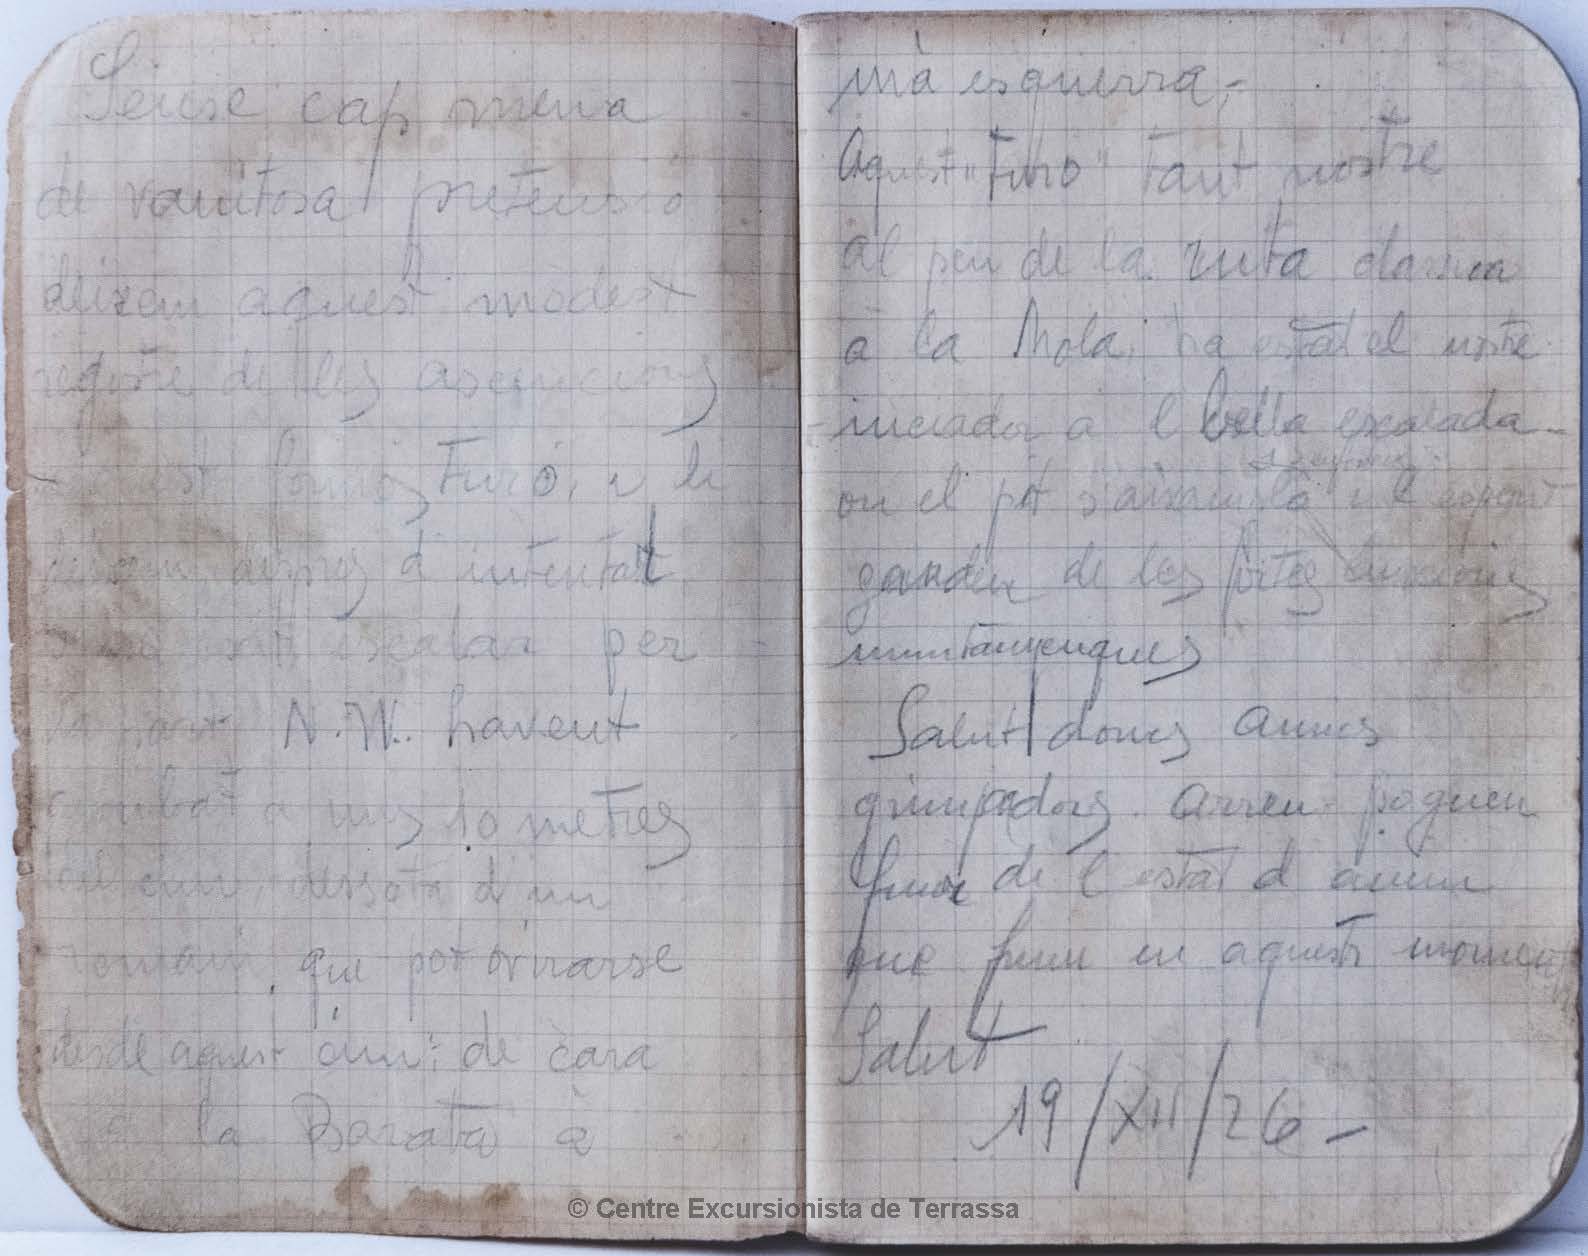 Sense cap mena
de vanitosa pretensió
deixem aquest mòdest
registre de les ascencions
formos Turó, i hi
despres d'intentat
escalar per
la part N.W. havent
arribat a uns 10 metres
del cim, dessota d'un
que pot ovirarse
desde aquest cim: de cara
a la Barata à
mà esquerra,-
Aquest "Turó" tant nostre
al peu de la ruta classica
à la Mola; ha estat el nostre
iniciador à l bella escalada
on el pit s'aixampla i l esperit
gaudeix de les fortes emocions
muntanyenques
Salut doncs amics
grimpadors. Arreu pogueu
fruir de l estat d anim
que fruim en aquests moments
Salut
19/XII/26-
© Centre Excursionista de Terrassa